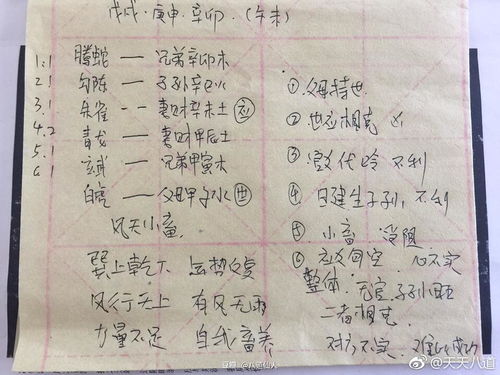 戊戌·庚申·辛卯·(午未)
1:1 腾蛇 — 兄弟辛卯木
2.1 勾陈 — 子孙辛巳火
3.1 朱雀 -- 妻财辛未土 应
4.2 青龙 — 妻财甲辰土
5.1 玄武 — 兄弟甲寅木
6 白虎 — 父母甲子水 世
风天小畜
巽上乾下
风行天上 有风无雨
力量不足 自我畜养
①父母持世
②世应相克 凶
③ 不利
④日建生子孙，不利
⑤小畜 受阻
⑥应爻旬空 心不实
整体：无官，子孙小旺
二者相克
对方不实，难以成功
豆瓣@八道仙人
@天天八道